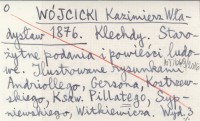 0
WÓJCICKI Kazimierz Wła-
dysław 1876. Klechdy. Staro-
żytne podania i powieści ludo-
we. Ilustrowane rysunkami
Andriollego, Gersona, Kostrzew-
skiego, Ksaw. Pillatego, Syp-
niewskiego, Witkiewicza. Wyd. 3